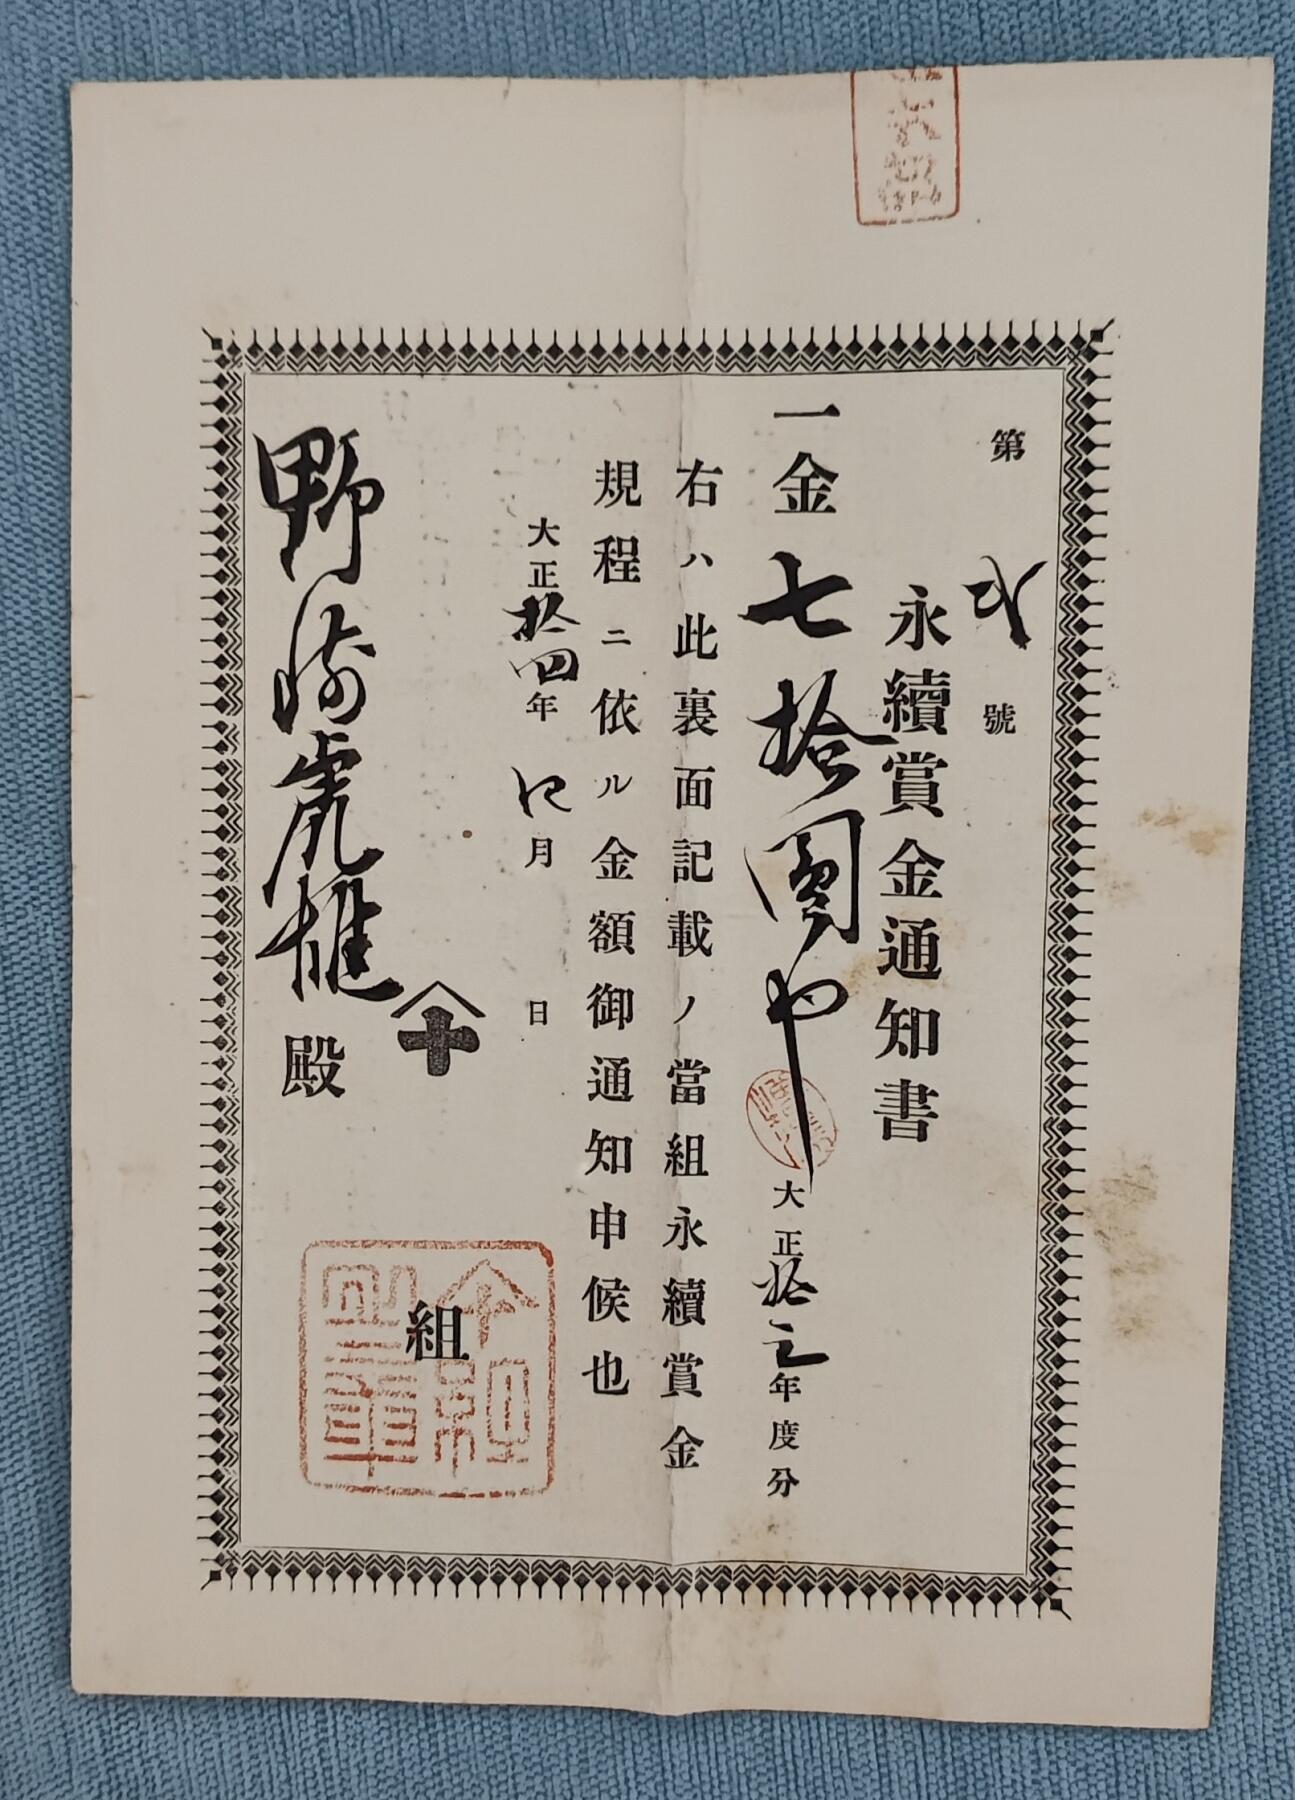 第弐號
永續賞金通知書
一金七拾圓也 大正拾三年度分
右ハ此裏面記載ノ當組永續賞金
規程ニ依ル金額御通知申候也
大正拾四年 月 日
組
野崎虎雄殿